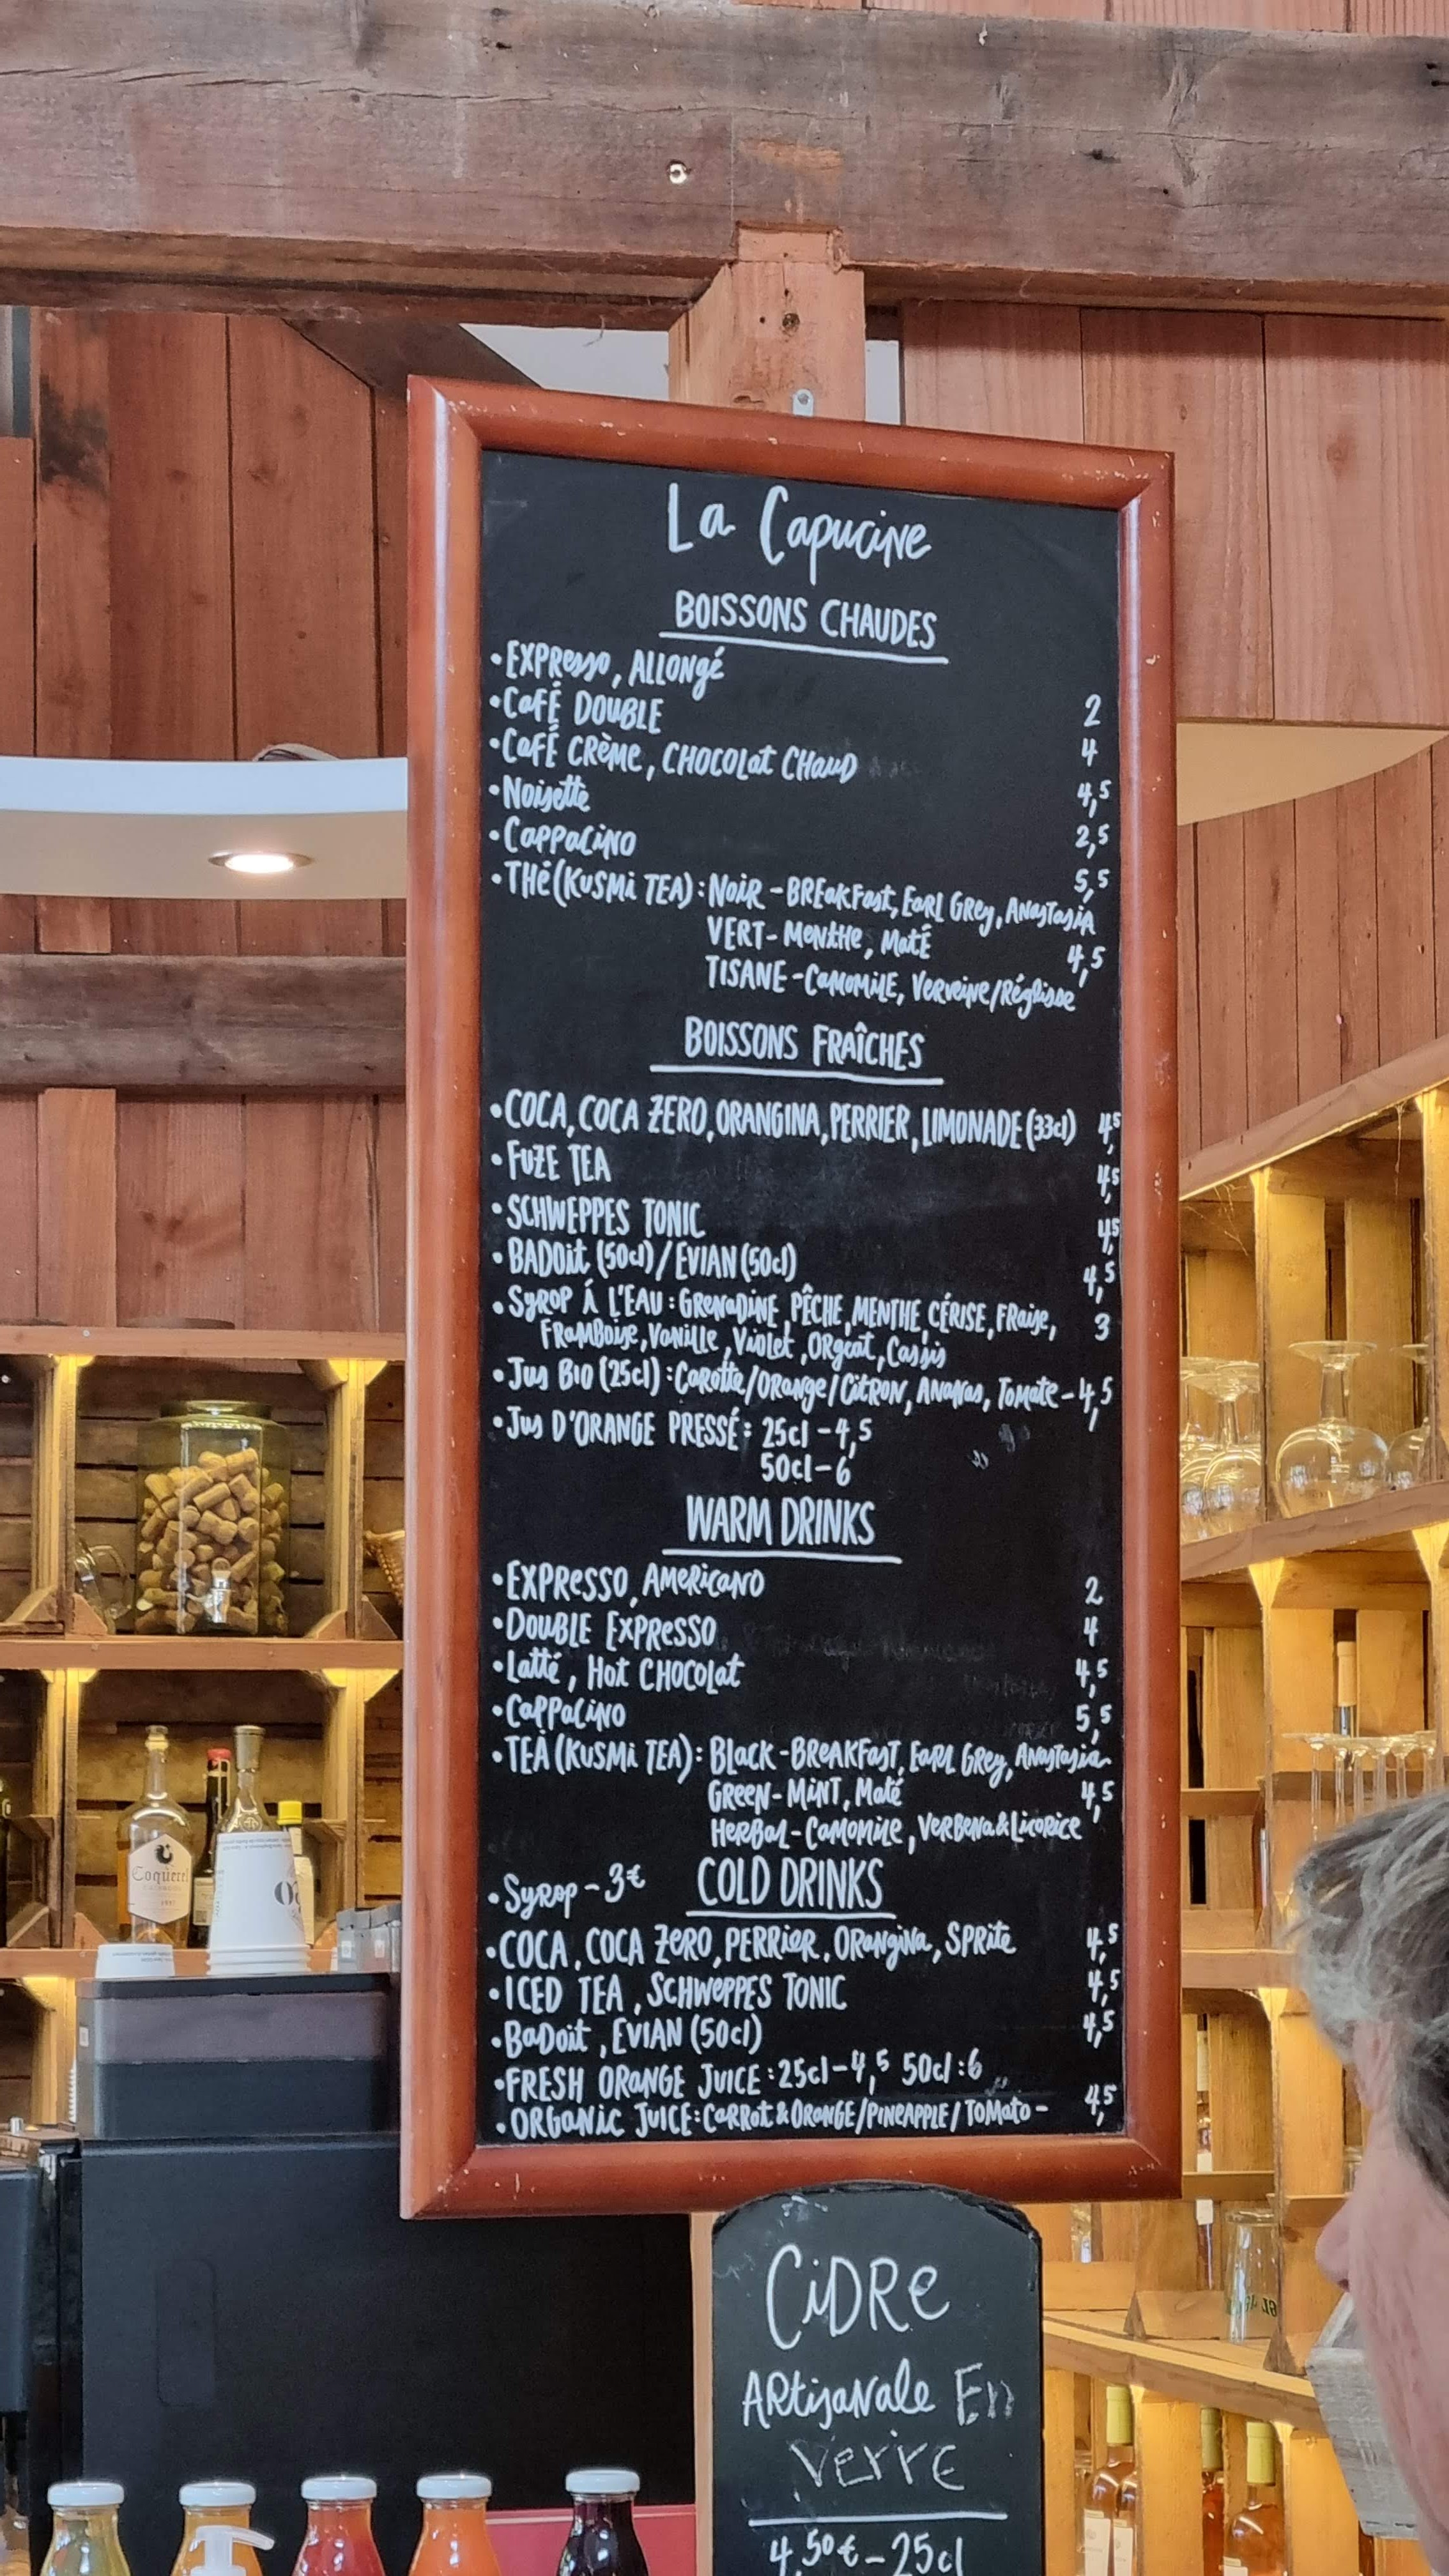 La Capucine
BOISSONS CHAUDES
•EXPResso, ALLONgé
•CaFÉ DOUBLE 2
•CaFÉ CRÈMe, CHOCOLat CHauD 4
•Noisette 4,5
•CappaciNO 2,5
•THé (KUSMi TEA): NoiR - BREakFast, EaRL GRey, ANastasiA 5,5
VERT - MeNtHe, MatÉ 4,5
TISANE - CaMOMiLE, Verveine/Réglisse
BOISSONS FRAÎCHES
•COCA, COCA ZERO, ORANGINA, PERRIER, LIMONADE (33cl) 4,5
•FUZE TEA 4,5
•SCHWEPPES TONIC 4,5
•BADOit (50cl) / EVIAN (50cl) 4,5
•SyROP Á L'EAU : GReNaDiNE, PÊCHE, MENTHE, CÉRISE, FRaise, 3
FRaMBoise, VaNiLLe, Violet, ORgeat, Cassis
•Jus BiO (25cl) : CaRotte/ORange/CitRON, ANaNas, ToMate - 4,5
•Jus D'ORANGE PRESSÉ: 25cl - 4,5
50cl - 6
WARM DRINKS
•EXPReSSO, AMeRiCaNO 2
•DOUBLE EXPResSO 4
•Latté, Hot CHOCOLat 4,5
•CaPPaCiNO 5,5
•TEA (KUSMi TEA): BLack - BReAKFasT, EaRL GRey, ANastasia
GReeN - MiNT, Maté 4,5
HeRBaL - CaMOMiLe, VeRBeNa & Licorice
•SyRoP - 3€ COLD DRINKS
•COCA, COCA ZeRO, PERRieR, ORaNgiNa, SPRite 4,5
•ICED TEA, SCHWePPES TONIC 4,5
•BaDoit, EVIAN (50cl) 4,5
•FRESH ORaNGE JUiCE : 25cl - 4,5 50cl : 6
•ORGaNiC JUiCE: CaRRot & ORaNGE / PiNEAPPLE / ToMato - 4,5
CiDRe
ARtisaNale En
verre
4,50€ - 25cl
Coquerel